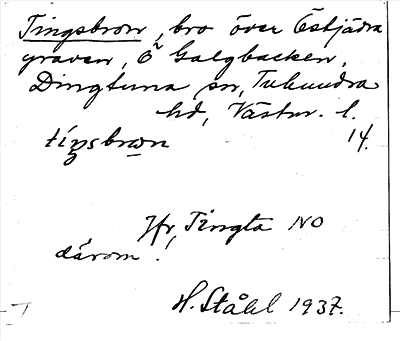 Tingsbron, bro över Östjädra
graven, Ö Galgbacken,
Dingtuna sn, Tuhundra
hd, Västm. l.
tiŋsbron 14.
Jfr, Tingta NO
därom!
H. Ståhl 1937.